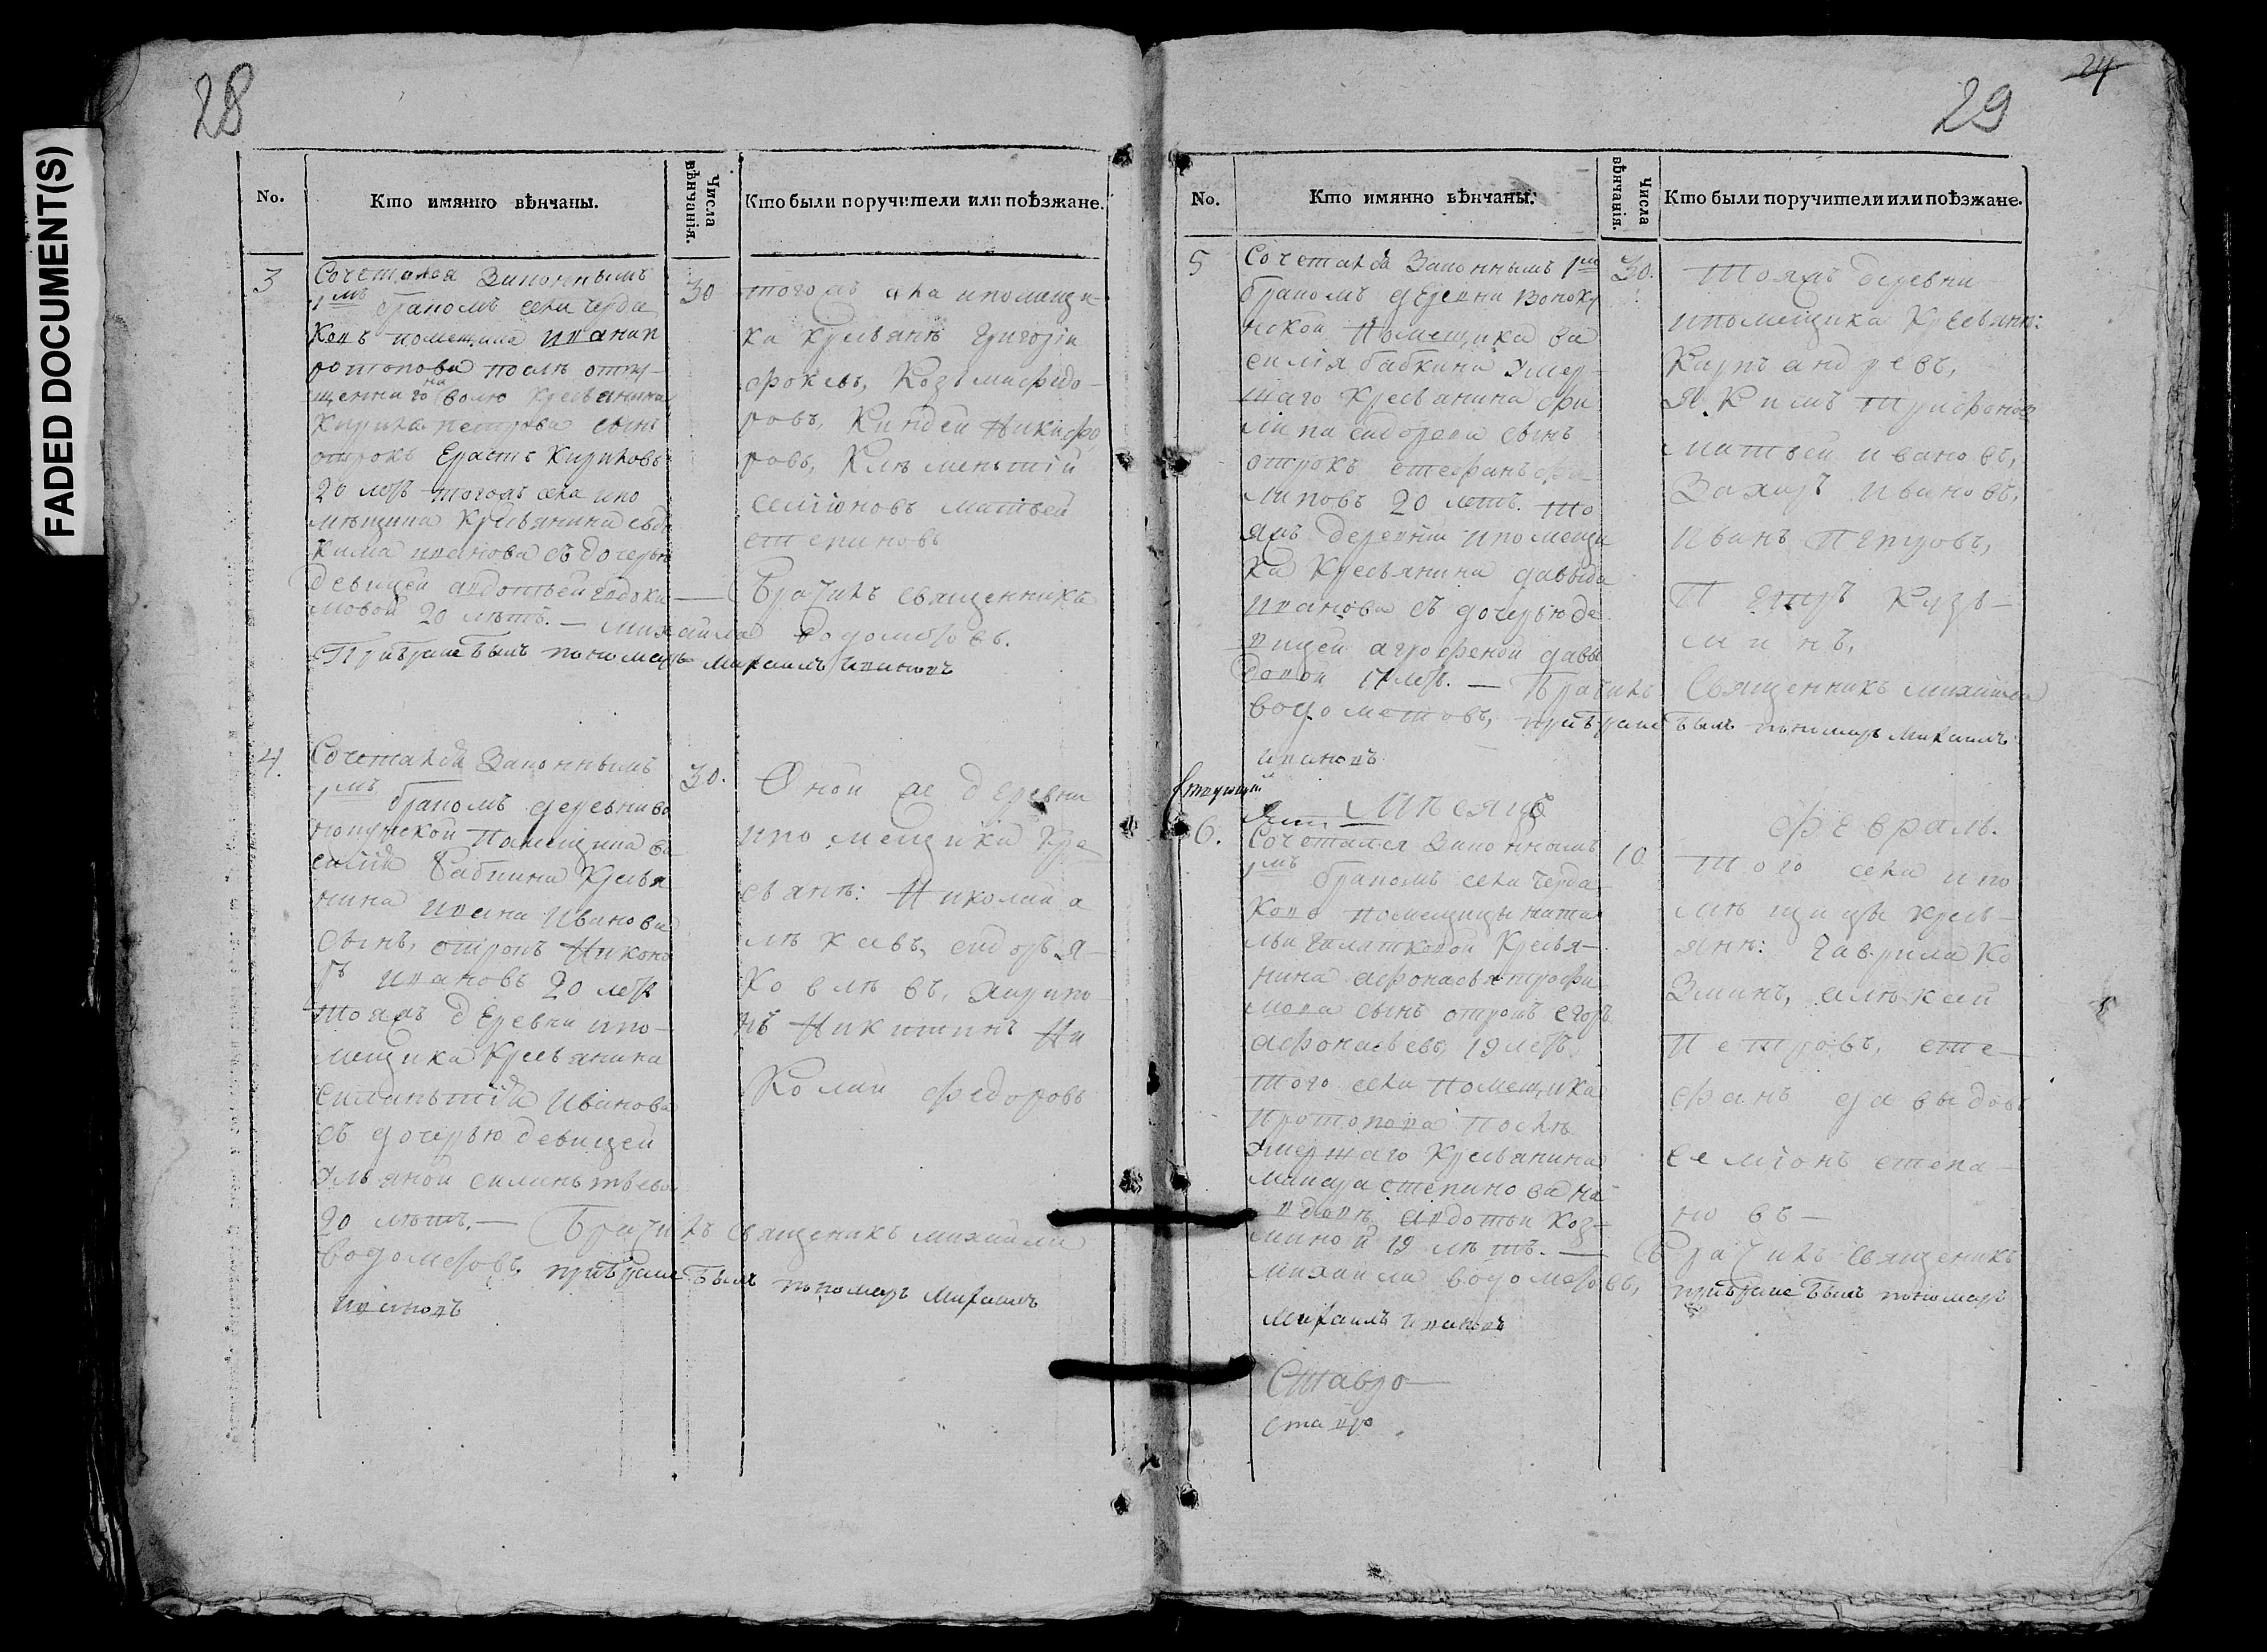 FADED DOCUMENT(S)
28
No.
Кто имянно вѣнчаны.
Числа вѣнчанія.
Кто были поручители или поѣзжане.
3
Сочетался Законнымъ
1мъ бракомъ села Черда
Ковъ помещика Ивана п
ротопопова послѣ отпу-
щеннаго на волю Кресьянина
Кирила петрова сынъ
отрокъ Ерастъ Кириловъ
20 летъ тогожъ села и по
мѣщика Кресьянина евдо
кима иванова съ дочерью
девицей авдотьей евдоки
мовой 20 лѣтъ. — Михаила
30
тогожъ села и помещи-
ка Кресьянѣ Григорій
Козьма Федо-
ровъ, Киндей Никифо
ровъ, Клѣменьтій
Семіоновъ Матьвей
степановъ
— Брачилъ священникъ
водометовъ.
При браке былъ пономарь Михаилъ ивановъ
4.
Сочетался Законнымъ
1мъ бракомъ деревни во
Помещика ва
силія Бабкина Кресья
нина Ивана Иванова
сынъ, отрокъ Никоно
ръ Ивановъ 20 летъ
тояжъ дЕревни и по-
мещика Кресьянина
силаньтія Иванова
съ дочерью девицей
Ульяной силаньтьево
20 лѣтъ. — Брачилъ священикъ михаила
водометовъ, при браке былъ пономарь Михаилъ
ивановъ
30.
Оной же дЕревни
и помещика Кре
сьянѣ: Николай а
лѣкѣевъ, сидоръ Я-
Ковлѣвъ,
Никитинъ Ни
Колай Федоровъ
29
24
No.
Кто имянно вѣнчаны.
Числа вѣнчанія.
Кто были поручители или поѣзжане.
5
Сочетался Законнымъ 1мъ
бракомъ дЕревни
Помещика ва
силія бабкина умер-
шаго Кресьянина фи
липа сидорова сынъ
отрокъ стефанъ фи-
липовъ 20 летъ. то
яжъ деревни и помещи
ка Кресьянина давыда
иванова съ дочерью де
вицей агрофеной давы
довой 17 летъ. — Брачилъ Священникъ михаила
водометовъ, при браке былъ пономарь Михаилъ
ивановъ
30.
Тояжъ деревни
и помещика Кресьянѣ:
Карпъ андревъ,
Якимъ Трифоновъ
матвей ивановъ,
Захаръ ивановъ,
Иванъ Петровъ,
Петръ Кузь-
минъ,
Мѣсяцъ
Февраль.
6.
Сочетался Законнымъ
1мъ бракомъ села Черда
Ково помещицы ната
льи Кресья-
нина афонасья трофи
мова сынъ отрокъ егоръ
афонасьевъ 19 летъ
того села помещика
протопопова послѣ
умершаго Кресьянина
макара степанова на
вдовѣ авдотьи Коз-
миной 19 лѣтъ. — Брачилъ священикъ
михаила водометовъ, при браке былъ пономарь
Михаилъ ивановъ
10
того села и по
мѣщицы кресь-
янѣ: Гаврила Ко
Зминъ, алѣксей
Петровъ, сте-
фанъ давыдовъ
семіонъ степа-
новъ —
Ставро
ставро